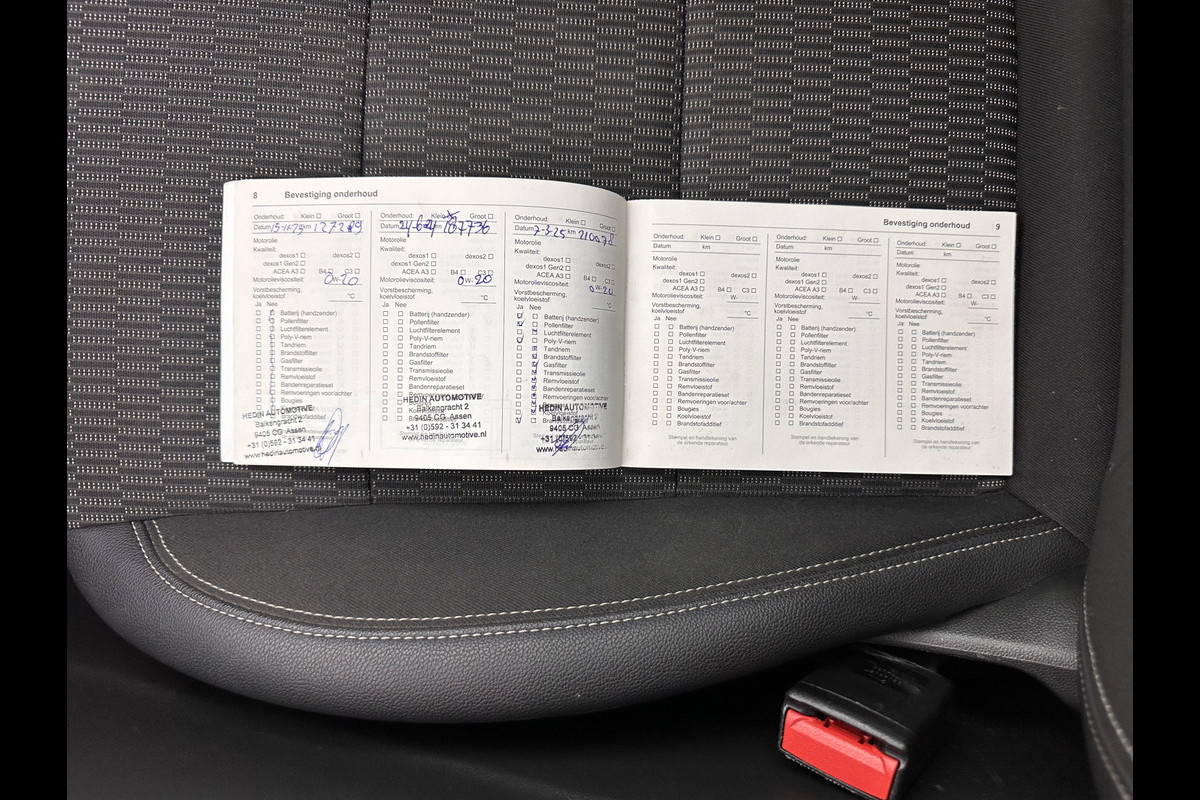 8 Bevestiging onderhoud
Onderhoud: Klein Groot
Datum km 127289
Motorolie
Kwaliteit:
dexos1 dexos2
dexos1 Gen2
ACEA A3 B4 C3
Motorolieviscositeit: 0W-20
Vorstbescherming,
koelvloeistof °C
Ja Nee
Batterij (handzender)
Pollenfilter
Luchtfilterelement
Poly-V-riem
Tandriem
Brandstoffilter
Gasfilter
Transmissieolie
Remvloeistof
Bandenreparatieset
Remvoeringen voor/achter
Bougies
HEDIN AUTOMOTIVE
Balkengracht 2
9405 CG Assen
+31 (0)592 - 31 34 41
www.hedinautomotive.nl
Onderhoud: Klein Groot
Datum 24-6-24 167736
Motorolie
Kwaliteit:
dexos1 dexos2
dexos1 Gen2
ACEA A3 B4 C3
Motorolieviscositeit: 0W-20
Vorstbescherming,
koelvloeistof °C
Ja Nee
Batterij (handzender)
Pollenfilter
Luchtfilterelement
Poly-V-riem
Tandriem
Brandstoffilter
Gasfilter
Transmissieolie
Remvloeistof
Bandenreparatieset
HEDIN AUTOMOTIVE
Balkengracht 2
9405 CG Assen
+31 (0)592 - 31 34 41
www.hedinautomotive.nl
Onderhoud: Klein Groot
Datum 2-3-25 km 210078
Motorolie
Kwaliteit:
dexos1 dexos2
dexos1 Gen2
ACEA A3 B4 C3
Motorolieviscositeit: 0W-20
Vorstbescherming,
koelvloeistof °C
Ja Nee
Batterij (handzender)
Pollenfilter
Luchtfilterelement
Poly-V-riem
Tandriem
Brandstoffilter
Gasfilter
Transmissieolie
Remvloeistof
Bandenreparatieset
Remvoeringen voor/achter
HEDIN AUTOMOTIVE
Balkengracht 2
9405 CG Assen
Bevestiging onderhoud 9
Onderhoud: Klein Groot
Datum km
Motorolie
Kwaliteit:
dexos1 dexos2
dexos1 Gen2
ACEA A3 B4 C3
Motorolieviscositeit: W-
Vorstbescherming,
koelvloeistof °C
Ja Nee
Batterij (handzender)
Pollenfilter
Luchtfilterelement
Poly-V-riem
Tandriem
Brandstoffilter
Gasfilter
Transmissieolie
Remvloeistof
Bandenreparatieset
Remvoeringen voor/achter
Bougies
Koelvloeistof
Brandstofadditief
Stempel en handtekening van
de erkende reparateur
Onderhoud: Klein Groot
Datum km
Motorolie
Kwaliteit:
dexos1 dexos2
dexos1 Gen2
ACEA A3 B4 C3
Motorolieviscositeit: W-
Vorstbescherming,
koelvloeistof °C
Ja Nee
Batterij (handzender)
Pollenfilter
Luchtfilterelement
Poly-V-riem
Tandriem
Brandstoffilter
Gasfilter
Transmissieolie
Remvloeistof
Bandenreparatieset
Remvoeringen voor/achter
Bougies
Koelvloeistof
Brandstofadditief
Stempel en handtekening van
de erkende reparateur
Onderhoud: Klein Groot
Datum km
Motorolie
Kwaliteit:
dexos1 dexos2
dexos1 Gen2
ACEA A3 B4 C3
Motorolieviscositeit: W-
Vorstbescherming,
koelvloeistof °C
Ja Nee
Batterij (handzender)
Pollenfilter
Luchtfilterelement
Poly-V-riem
Tandriem
Brandstoffilter
Gasfilter
Transmissieolie
Remvloeistof
Bandenreparatieset
Remvoeringen voor/achter
Bougies
Koelvloeistof
Brandstofadditief
Stempel en handtekening van
de erkende reparateur